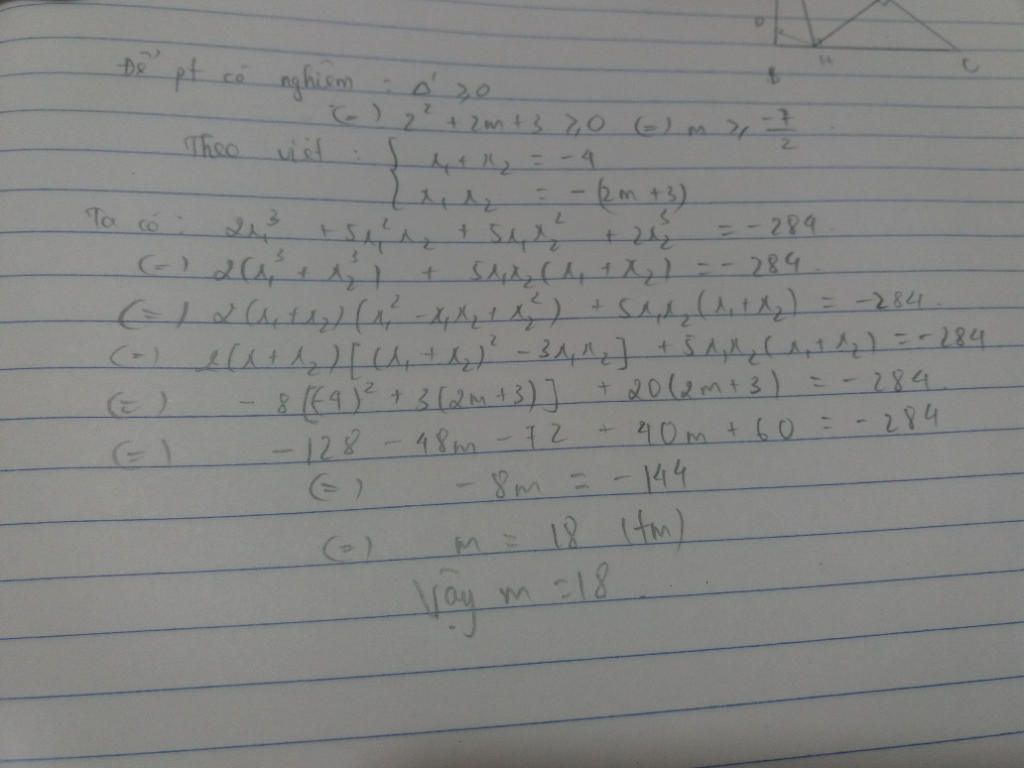 D
B H C
Để pt có nghiệm : Δ' ⩾ 0
(=) 2² + 2m + 3 ⩾ 0 (=) m ⩾ -7/2
Theo viét : { x₁ + x₂ = -4
x₁ x₂ = -(2m + 3)
Ta có : 2x₁³ + 5x₁²x₂ + 5x₁x₂² + 2x₂³ = -284
(=) 2(x₁³ + x₂³) + 5x₁x₂(x₁ + x₂) = -284.
(=) 2(x₁+x₂)(x₁² - x₁x₂ + x₂²) + 5x₁x₂(x₁+x₂) = -284.
(=) 2(x + x₂)[(x₁ + x₂)² - 3x₁x₂] + 5x₁x₂(x₁+x₂) = -284
(=) - 8[(-4)² + 3(2m+3)] + 20(2m+3) = -284.
(=) -128 - 48m - 72 + 40m + 60 = -284
(=) - 8m = -144
(=) m = 18 (tm)
Vậy m = 18.